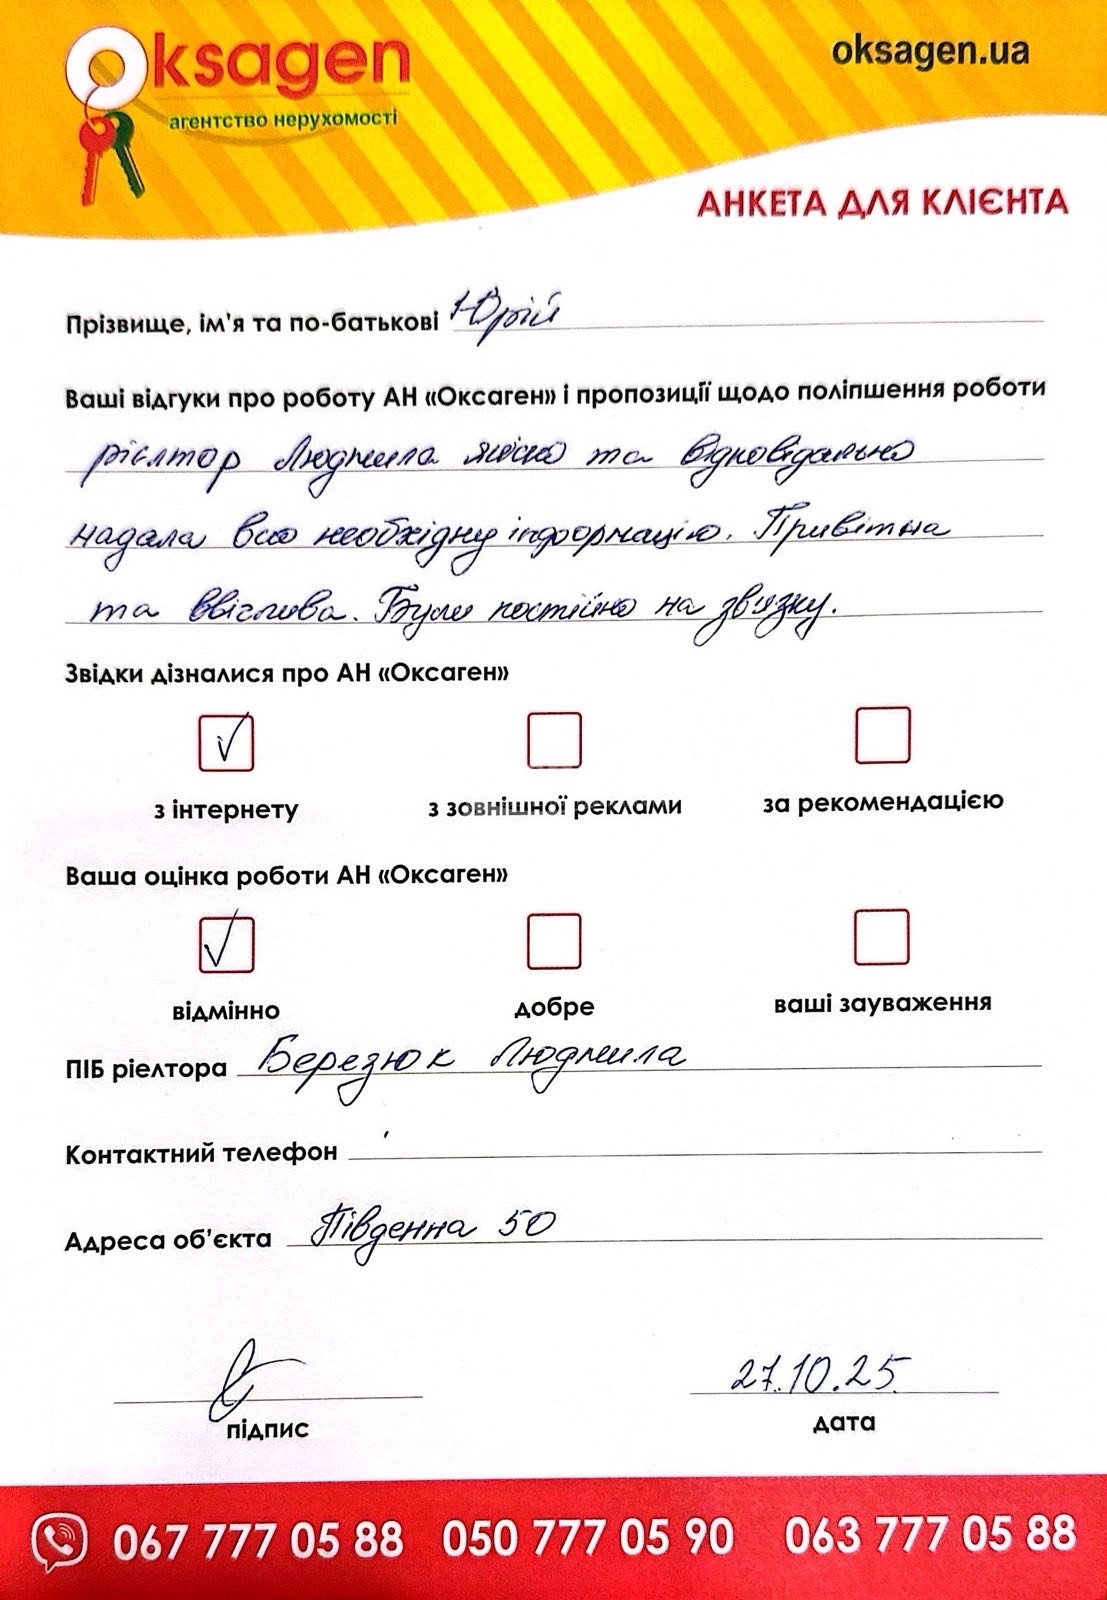 Oksagen
агентство нерухомості
oksagen.ua
АНКЕТА ДЛЯ КЛІЄНТА
Прізвище, ім'я та по-батькові Юрій
Ваші відгуки про роботу АН «Оксаген» і пропозиції щодо поліпшення роботи
рієлтор Людмила якісно та відповідально
надала всю необхідну інформацію. Привітна
та ввічлива. Були постійно на звязку.
Звідки дізналися про АН «Оксаген»
з інтернету з зовнішної реклами за рекомендацією
Ваша оцінка роботи АН «Оксаген»
відмінно добре ваші зауваження
ПІБ ріелтора Березюк Людмила
Контактний телефон
Адреса об'єкта Південна 50
27.10.25
підпис дата
067 777 05 88 050 777 05 90 063 777 05 88